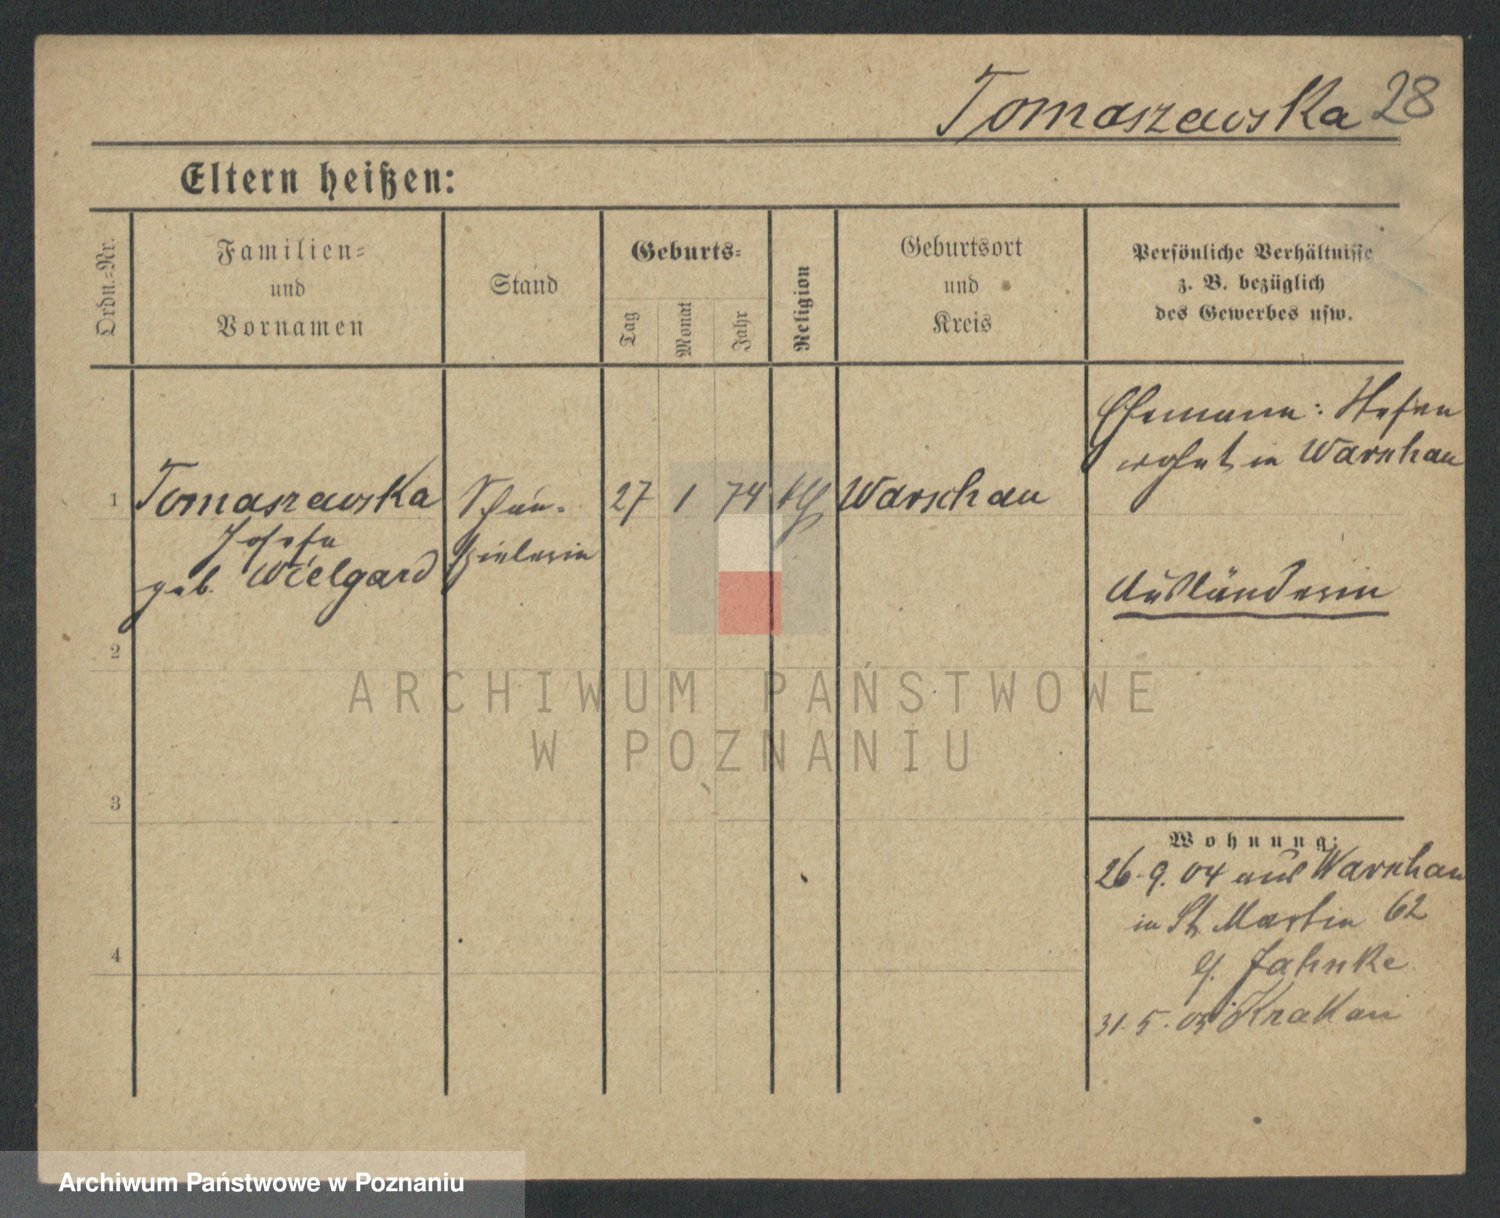 Tomaszewska 28
Eltern heißen:
Ordn.-Nr.
Familien-
und
Vornamen
Stand
Geburts-
Tag
Monat
Jahr
Religion
Geburtsort
und
Kreis
Persönliche Verhältnisse
z. B. bezüglich
des Gewerbes usw.
Ehemann: Stefan
wohnt in Warschau
1 Tomaszewska Schau- 27 1 74 kth Warschau
Josefa spielerin
geb. Wielgard
Ausländerin
2
3
4
Wohnung:
26.9.04 aus Warschau
in St. Martin 62
b. Jahnke
31.5.05 Krakau
ARCHIWUM PAŃSTWOWE
W POZNANIU
Archiwum Państwowe w Poznaniu